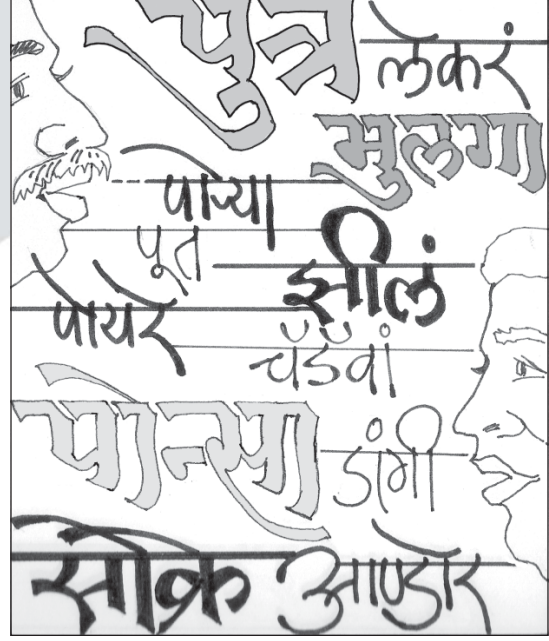 पुत्र
लेकरं
मुलगा
पोऱ्या
पूत
झीलं
पोयरे
चॅडॅवां
पोन्सा
डांगी
आण्डोर